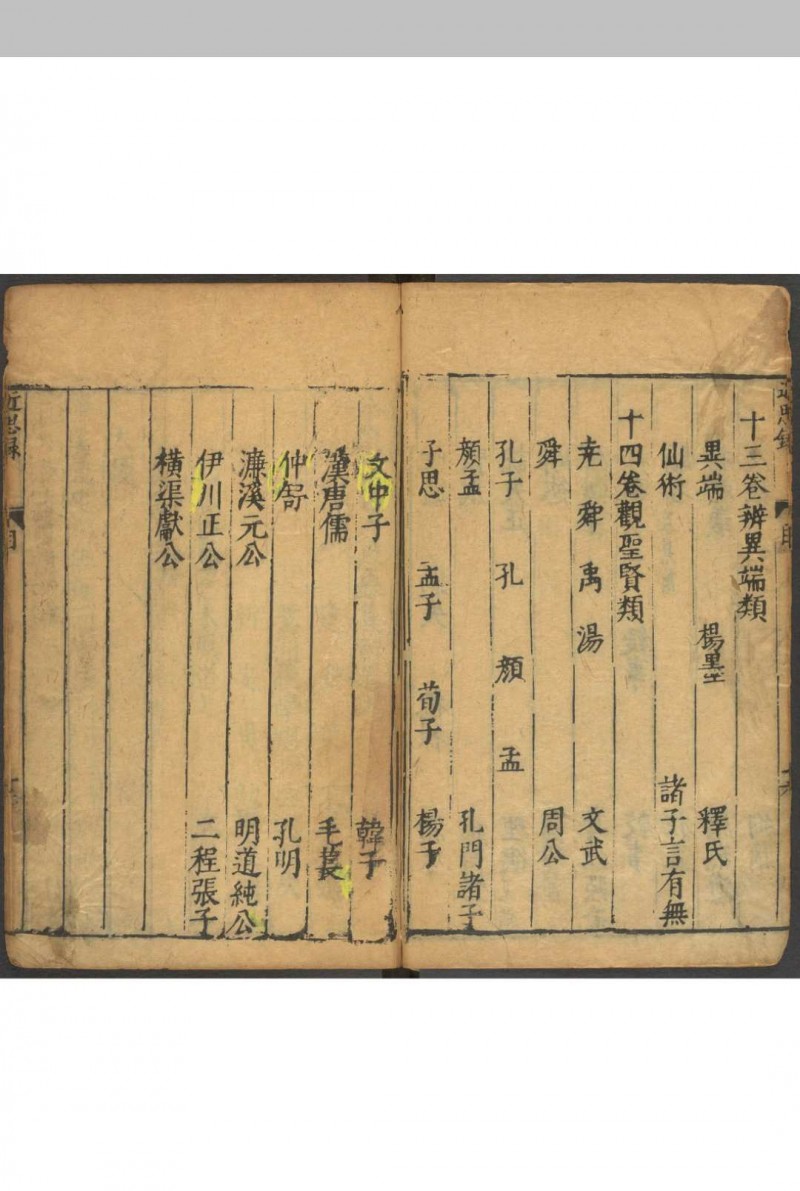 十三卷辨異端類
異端 楊墨 釋氏
仙術 諸子言有無
十四卷觀聖賢類
尭舜禹湯 文武
舜 周公
孔子 孔 顏 孟
顏孟 孔門諸子
子思 孟子 荀子 楊子
文中子 韓子
漢唐儒 毛萇
仲舒 孔明
濂溪元公 明道純公
伊川正公 二程張子
橫渠獻公
近思録 目